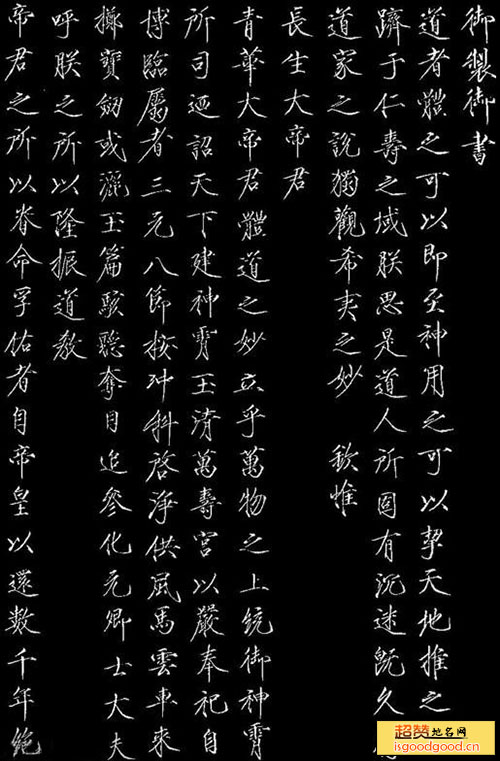 御製御書
道者體之可以即至神用之可以挈天地推之
躋于仁壽之域朕思是道人所固有沉迷既久
道家之說獨觀希夷之妙 欽惟
長生大帝君
青華大帝君體道之妙立乎萬物之上統御神霄
所司迺詔天下建神霄玉清萬壽宮以嚴奉祀自
博臨屬者三元八節按沖科啓淨供風馬雲車來
擲寶劒或灑玉篇駭聽奪目追參化元卿士大夫
呼朕之所以隆振道教
帝君之所以眷命孚佑者自帝皇以還數千年絶
超赞地名网
isgoodgood.cn